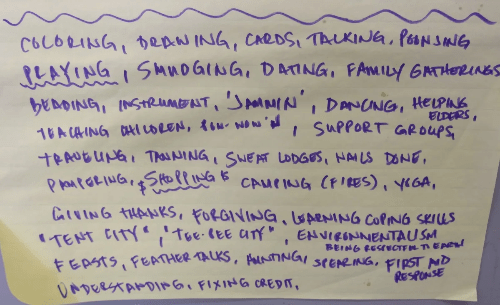 COLORING, DRAWING, CARDS, TALKING,
PLAYING, SMUDGING, DATING, FAMILY GATHERINGS
BEADING, INSTRUMENT, 'JAMMIN', DANCING, HELPING ELDERS,
TEACHING CHILDREN, POW-WOW'N, SUPPORT GROUPS,
TRAVELING, TANNING, SWEAT LODGES, NAILS DONE,
PAMPERING, SHOPPING CAMPING (FIRES), YOGA,
GIVING THANKS, FORGIVING, LEARNING COPING SKILLS
"TENT CITY", "TEE-PEE CITY", ENVIRONMENTALISM
BEING RESPECTFUL TO EARTH
FEASTS, FEATHER TALKS, HUNTING, SPEARING, FIRST AID RESPONSE
UNDERSTANDING, FIXING CREDIT,